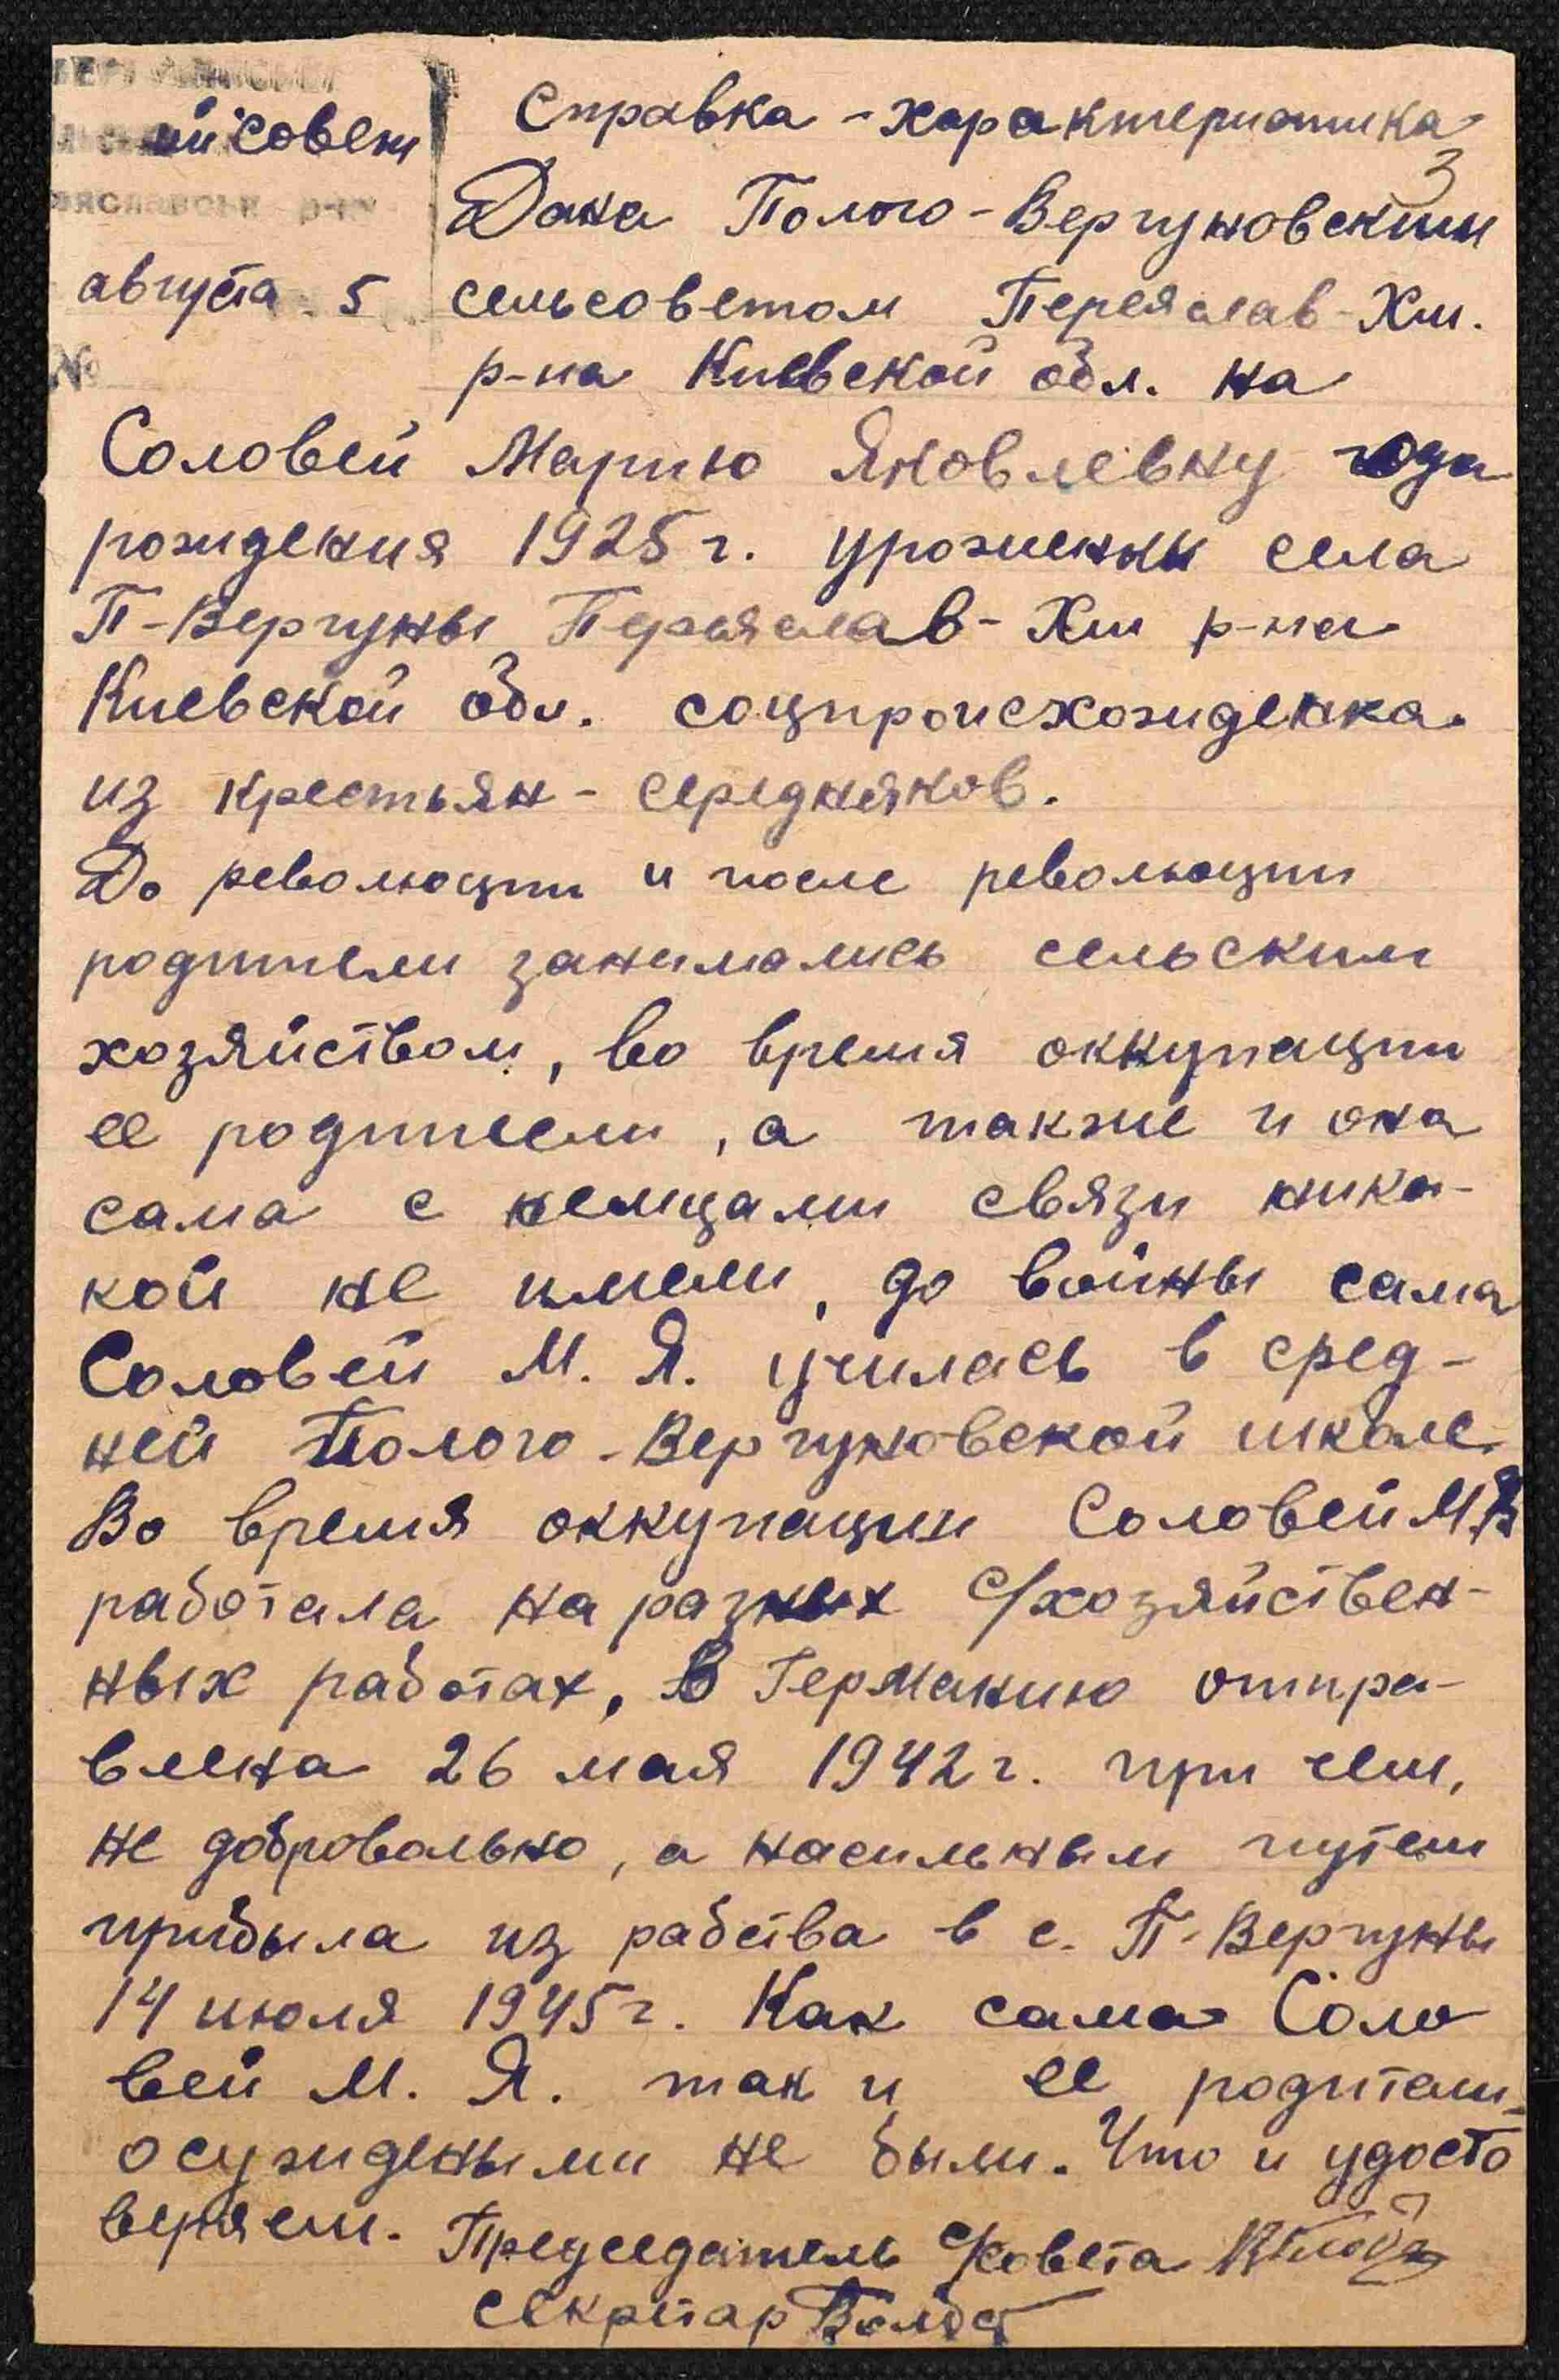 ий совет
августа 5
№
Справка - характеристика
3
Дана Полого-Вергуновским
сельсоветом Переяслав-Хм.
р-на Киевской обл. на
Соловей Марию Яковлевну года
рождения 1925 г. уроженки села
П-Вергуны Переяслав-Хм р-на
Киевской обл. соцпроисхожденка.
из крестьян-середняков.
До революции и после революции
родители занимались сельским
хозяйством, во время оккупации
ее родители, а также и она
сама с немцами связи ника-
кой не имели, до войны сама
Соловей М. Я. училась в сред-
ней Полого-Вергуновской школе.
Во время оккупации Соловей М.Я
работала на разных с/хозяйствен-
ных работах, в Германию отпра-
влена 26 мая 1942 г. при чем,
не добровольно, а насильным путем
прибыла из рабства в с. П-Вергуны
14 июля 1945 г. Как сама Соло
вей М. Я. так и ее родители
осужденными не были. Что и удосто
веряем. Председатель с/совета
секретар